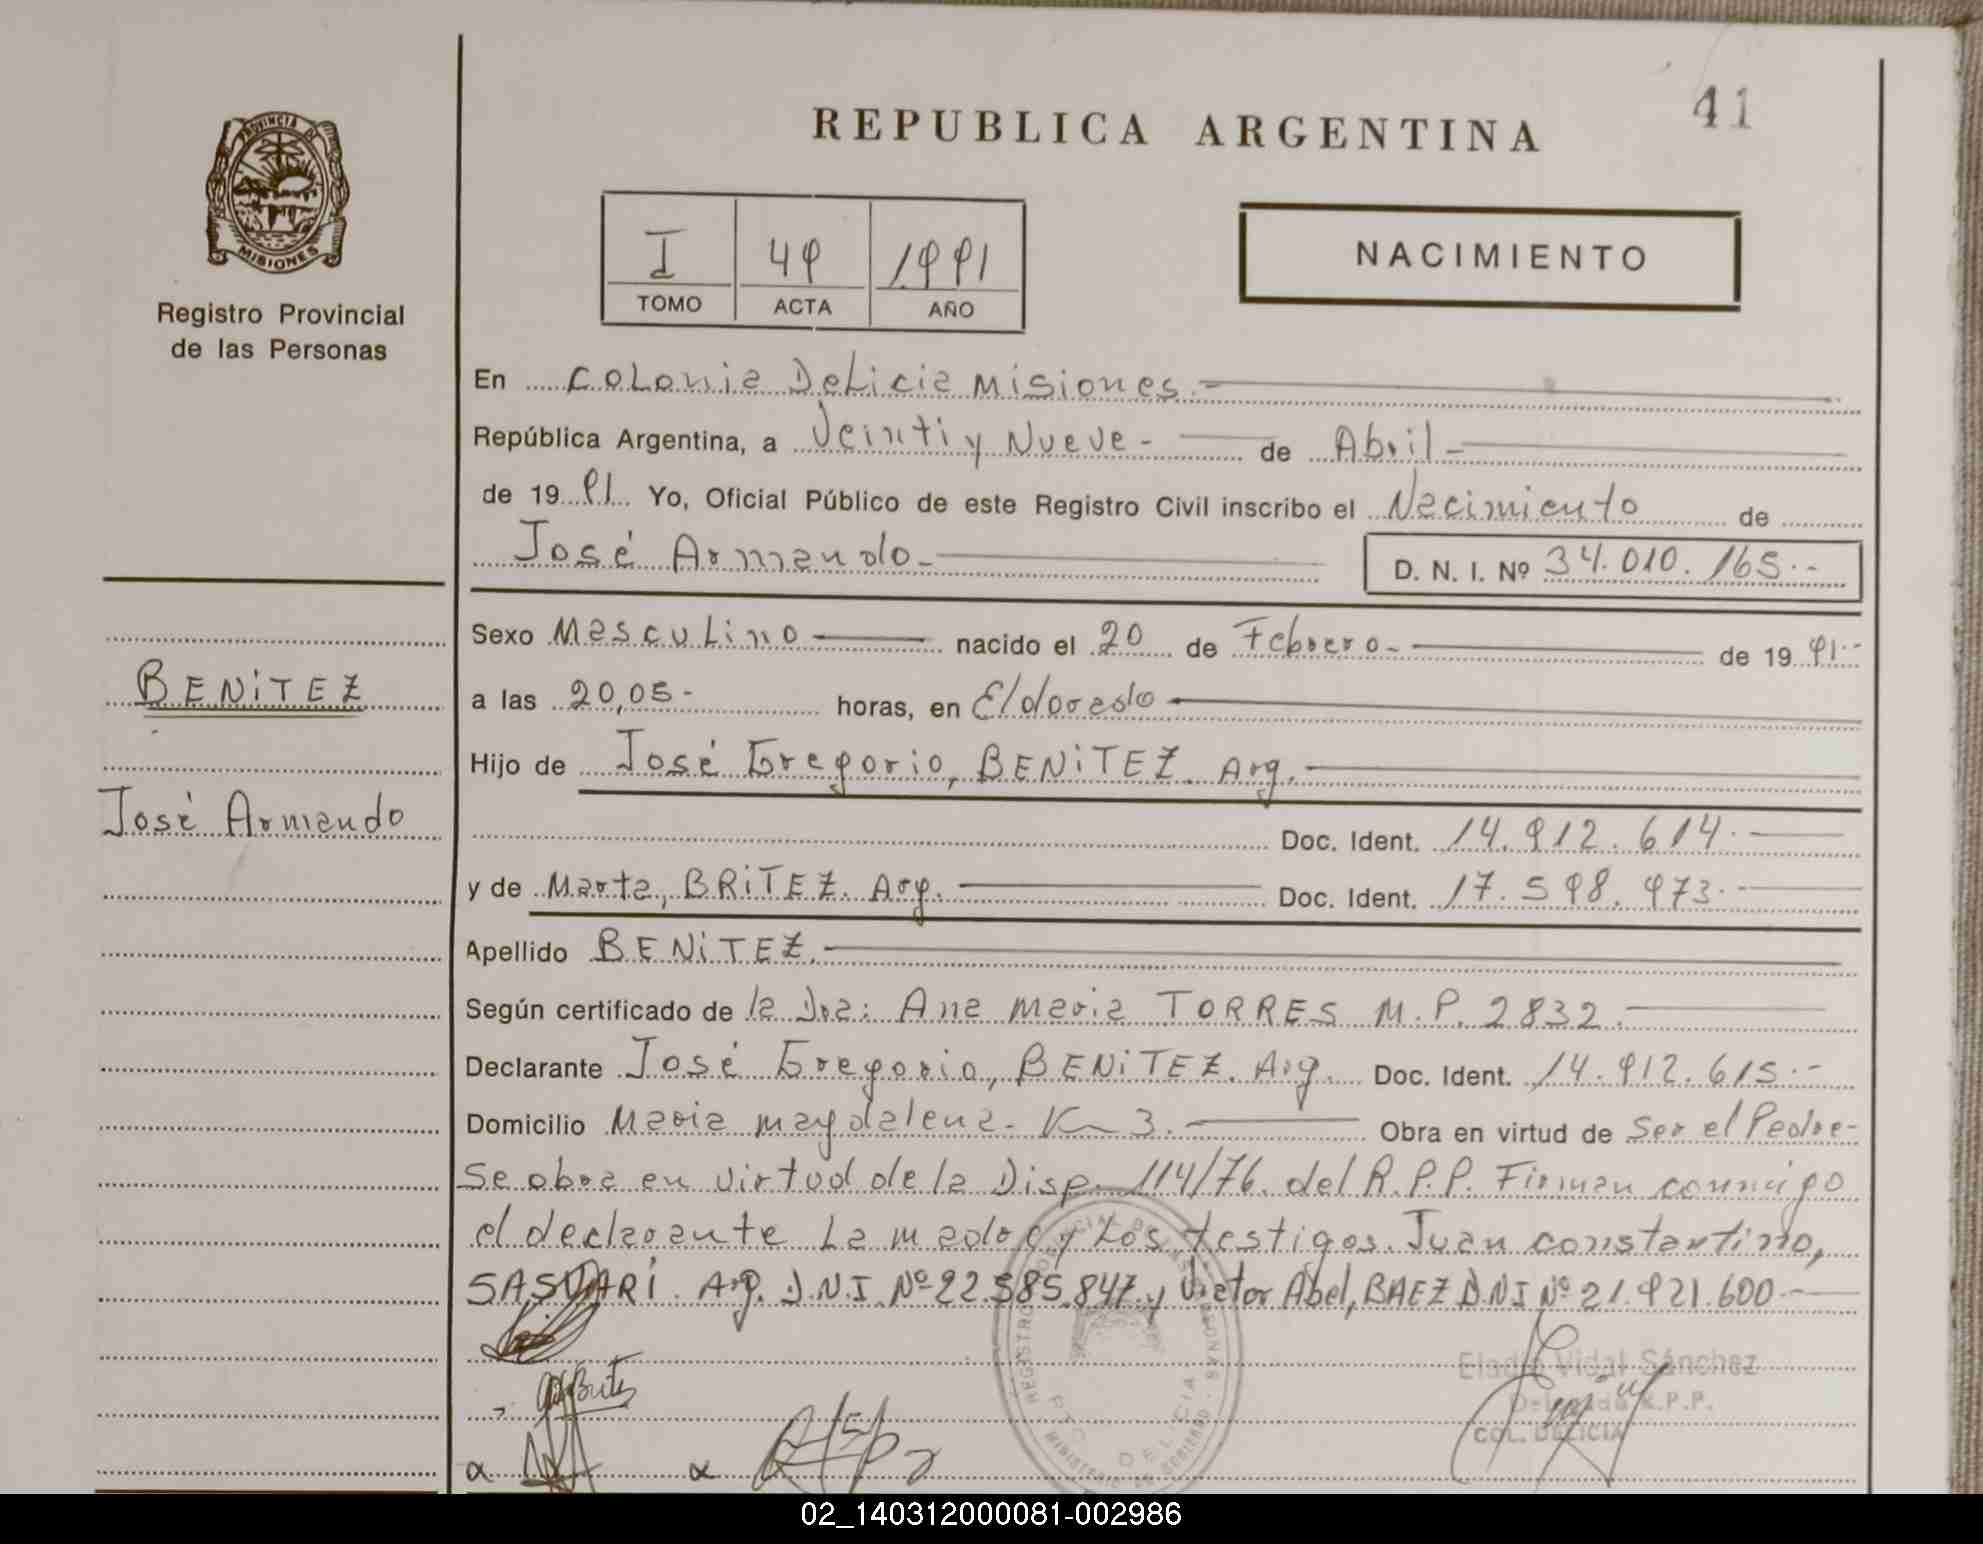 REPUBLICA ARGENTINA
41
PROVINCIA DE
MISIONES
Registro Provincial
de las Personas
I 49 1991
TOMO ACTA AÑO
NACIMIENTO
En Colonia Delicia Misiones.-
República Argentina, a Veinti y Nueve- de Abril-
de 1991 Yo, Oficial Público de este Registro Civil inscribo el Nacimiento de
José Armando- D. N. I. Nº 34.010.165.-
Sexo Masculino nacido el 20 de Febrero- de 1991.-
BENITEZ
a las 20,05- horas, en Eldorado
Hijo de José Gregorio, BENITEZ. Arg.
José Armando
Doc. Ident. 14.912.614.
y de Marta, BRITEZ. Arg. Doc. Ident. 17.598.973.
Apellido BENITEZ.
Según certificado de la Dra: Ana Maria TORRES M.P. 2832.
Declarante José Gregorio, BENITEZ. Arg. Doc. Ident. 14.912.615.-
Domicilio Maria Magdalena- Km 3. Obra en virtud de Ser el Padre-
Se obra en virtud de la Disp. 114/76. del R.P.P. Firman conmigo
el declarante La madre y Los testigos. Juan constantino,
SASVARI. Arg. D.N.I. Nº 22.585.847. y Victor Abel, BAEZ D.N.I Nº 21.921.600.-
Eladio Vidal Sánchez
Delegado R.P.P.
COL. DELICIA
02_140312000081-002986